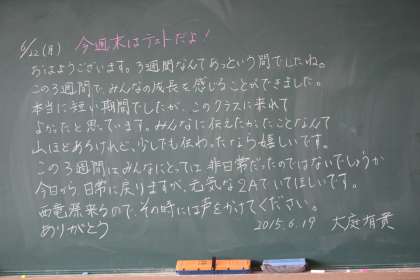 6/22(月) 今週末はテストだよ!
おはようございます。3週間なんてあっという間でしたね。
この3週間で、みんなの成長を感じることができました。
本当に短い期間でしたが、このクラスに来れて
よかったと思っています。みんなに伝えたかったことなんて
山ほどあるけれど、少しでも伝わったなら嬉しいです。
この3週間はみんなにとっては非日常だったのではないでしょうか
今日から日常に戻りますが、元気な2Aでいてほしいです。
西竜祭来るので、その時には声をかけてください。
ありがとう 2015.6.19 大庭有貴